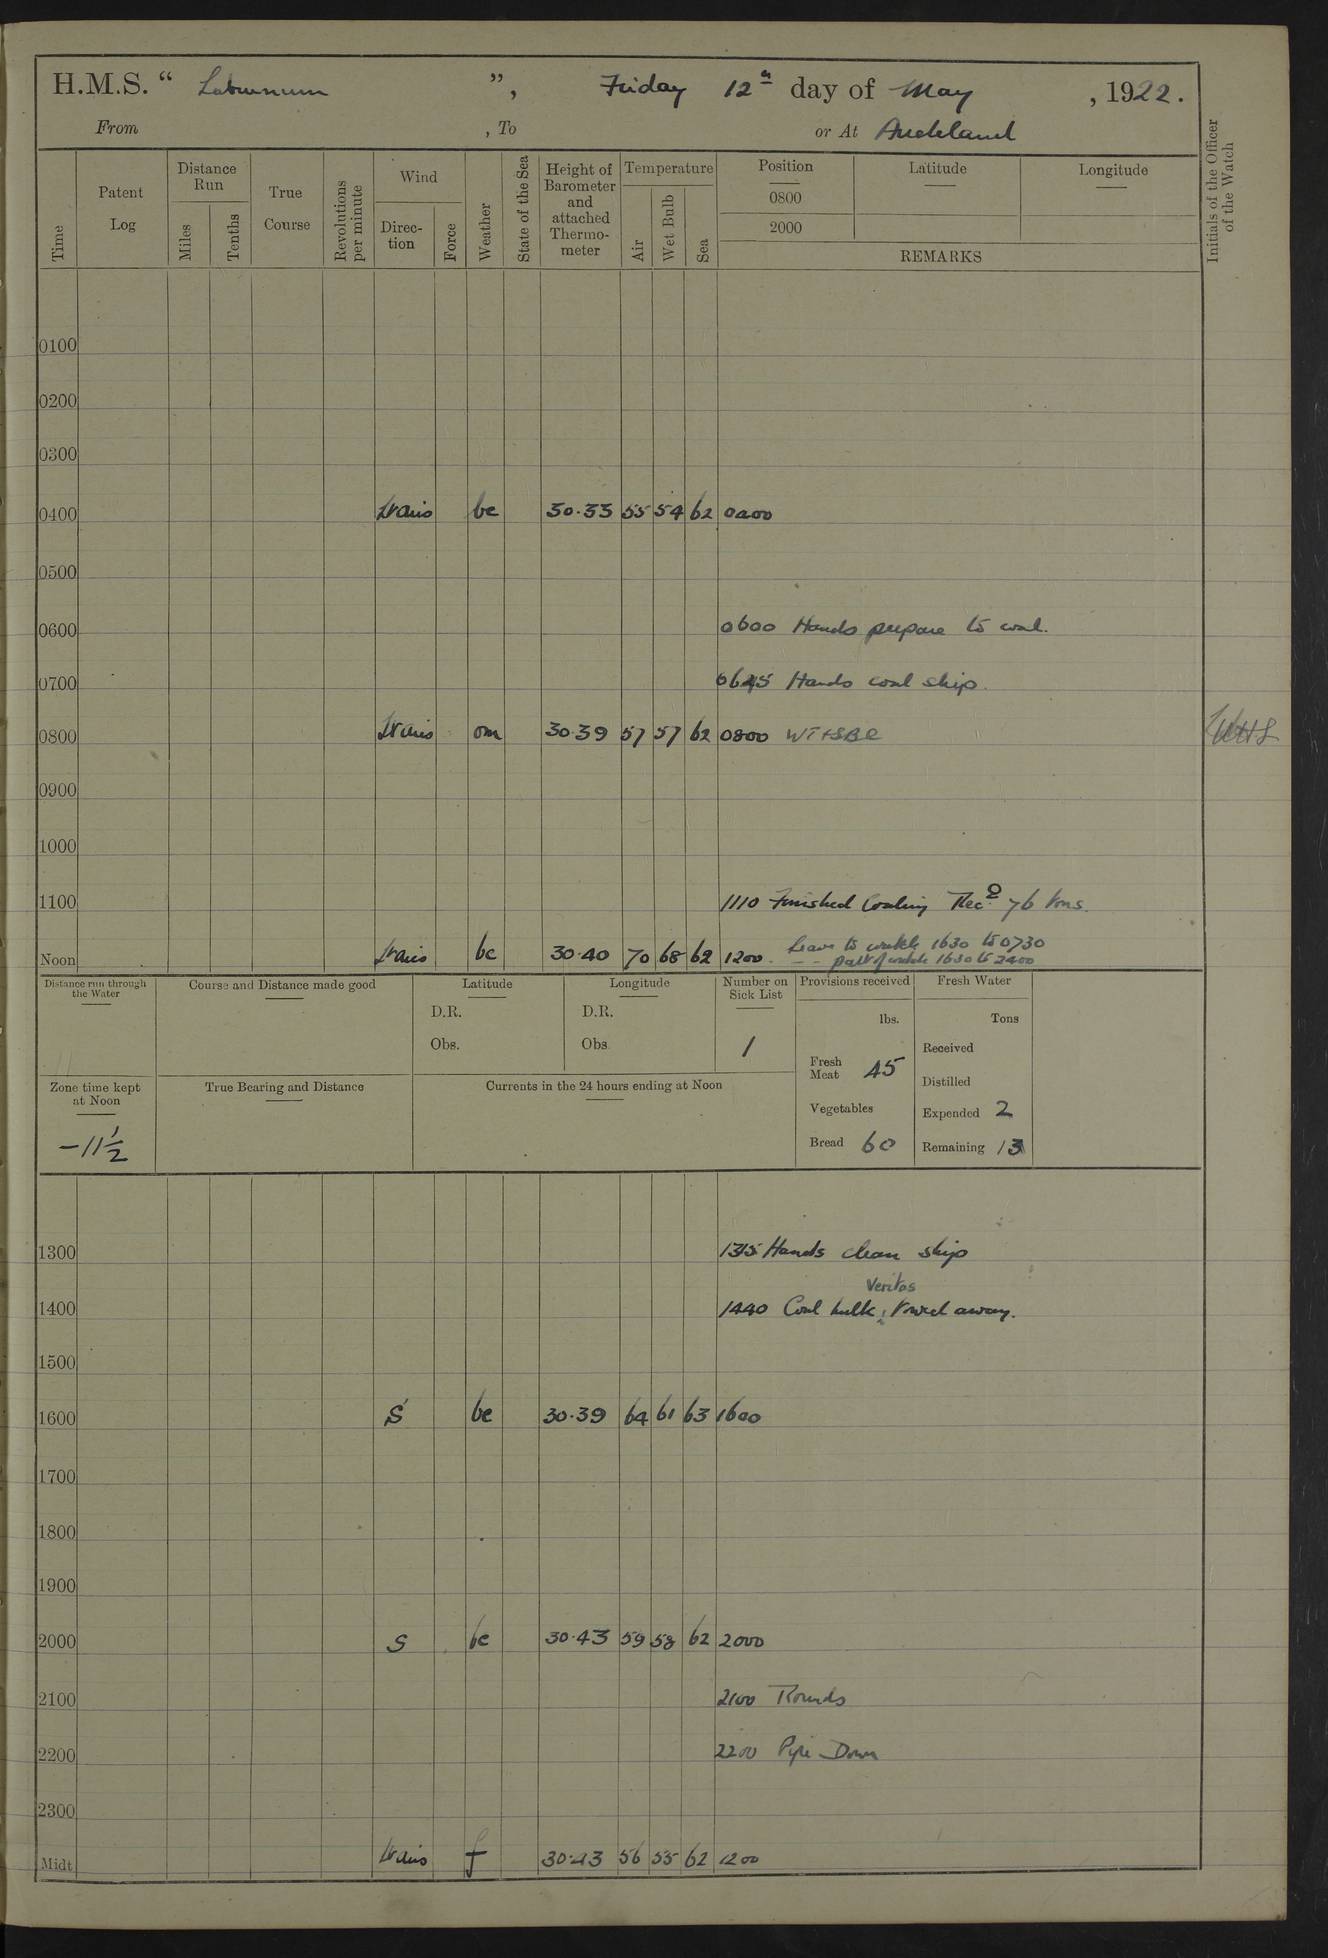 H.M.S. “ Laburnum ”, Friday 12th day of May , 1922.
From , To or At Auckland
Time
Patent Log
Distance Run
Miles
Tenths
True Course
Revolutions per minute
Wind
Direction
Force
Weather
State of the Sea
Height of Barometer and attached Thermometer
Temperature
Air
Wet Bulb
Sea
Position
0800
2000
Latitude
Longitude
REMARKS
Initials of the Officer of the Watch
0100
0200
0300
0400 Lt airs bc 30.33 55 54 62 0400
0500
0600 0600 Hands prepare to coal.
0700 0645 Hands coal ship.
0800 Lt airs om 30.39 57 57 62 0800 WHS
0900
1000
1100 1110 Finished Coaling Recd 76 tons.
Noon Lt airs bc 30.40 70 68 62 1200. Leave to watch 1630 to 0730
- - part of watch 1630 to 2400
Distance run through the Water
Course and Distance made good
Latitude
D.R.
Obs.
Longitude
D.R.
Obs
Number on Sick List
1
Provisions received
lbs.
Fresh Meat 45
Vegetables
Bread 60
Fresh Water
Tons
Received
Distilled
Expended 2
Remaining 13
Zone time kept at Noon
-11½
True Bearing and Distance
Currents in the 24 hours ending at Noon
1300 1315 Hands clean ship
Veritas
1400 1440 Coal hulk towed away.
1500
1600 S bc 30.39 64 61 63 1600
1700
1800
1900
2000 S bc 30.43 59 58 62 2000
2100 2100 Rounds
2200 2200 Pipe Down
2300
Midt Lt airs f 30.43 56 55 62 1200